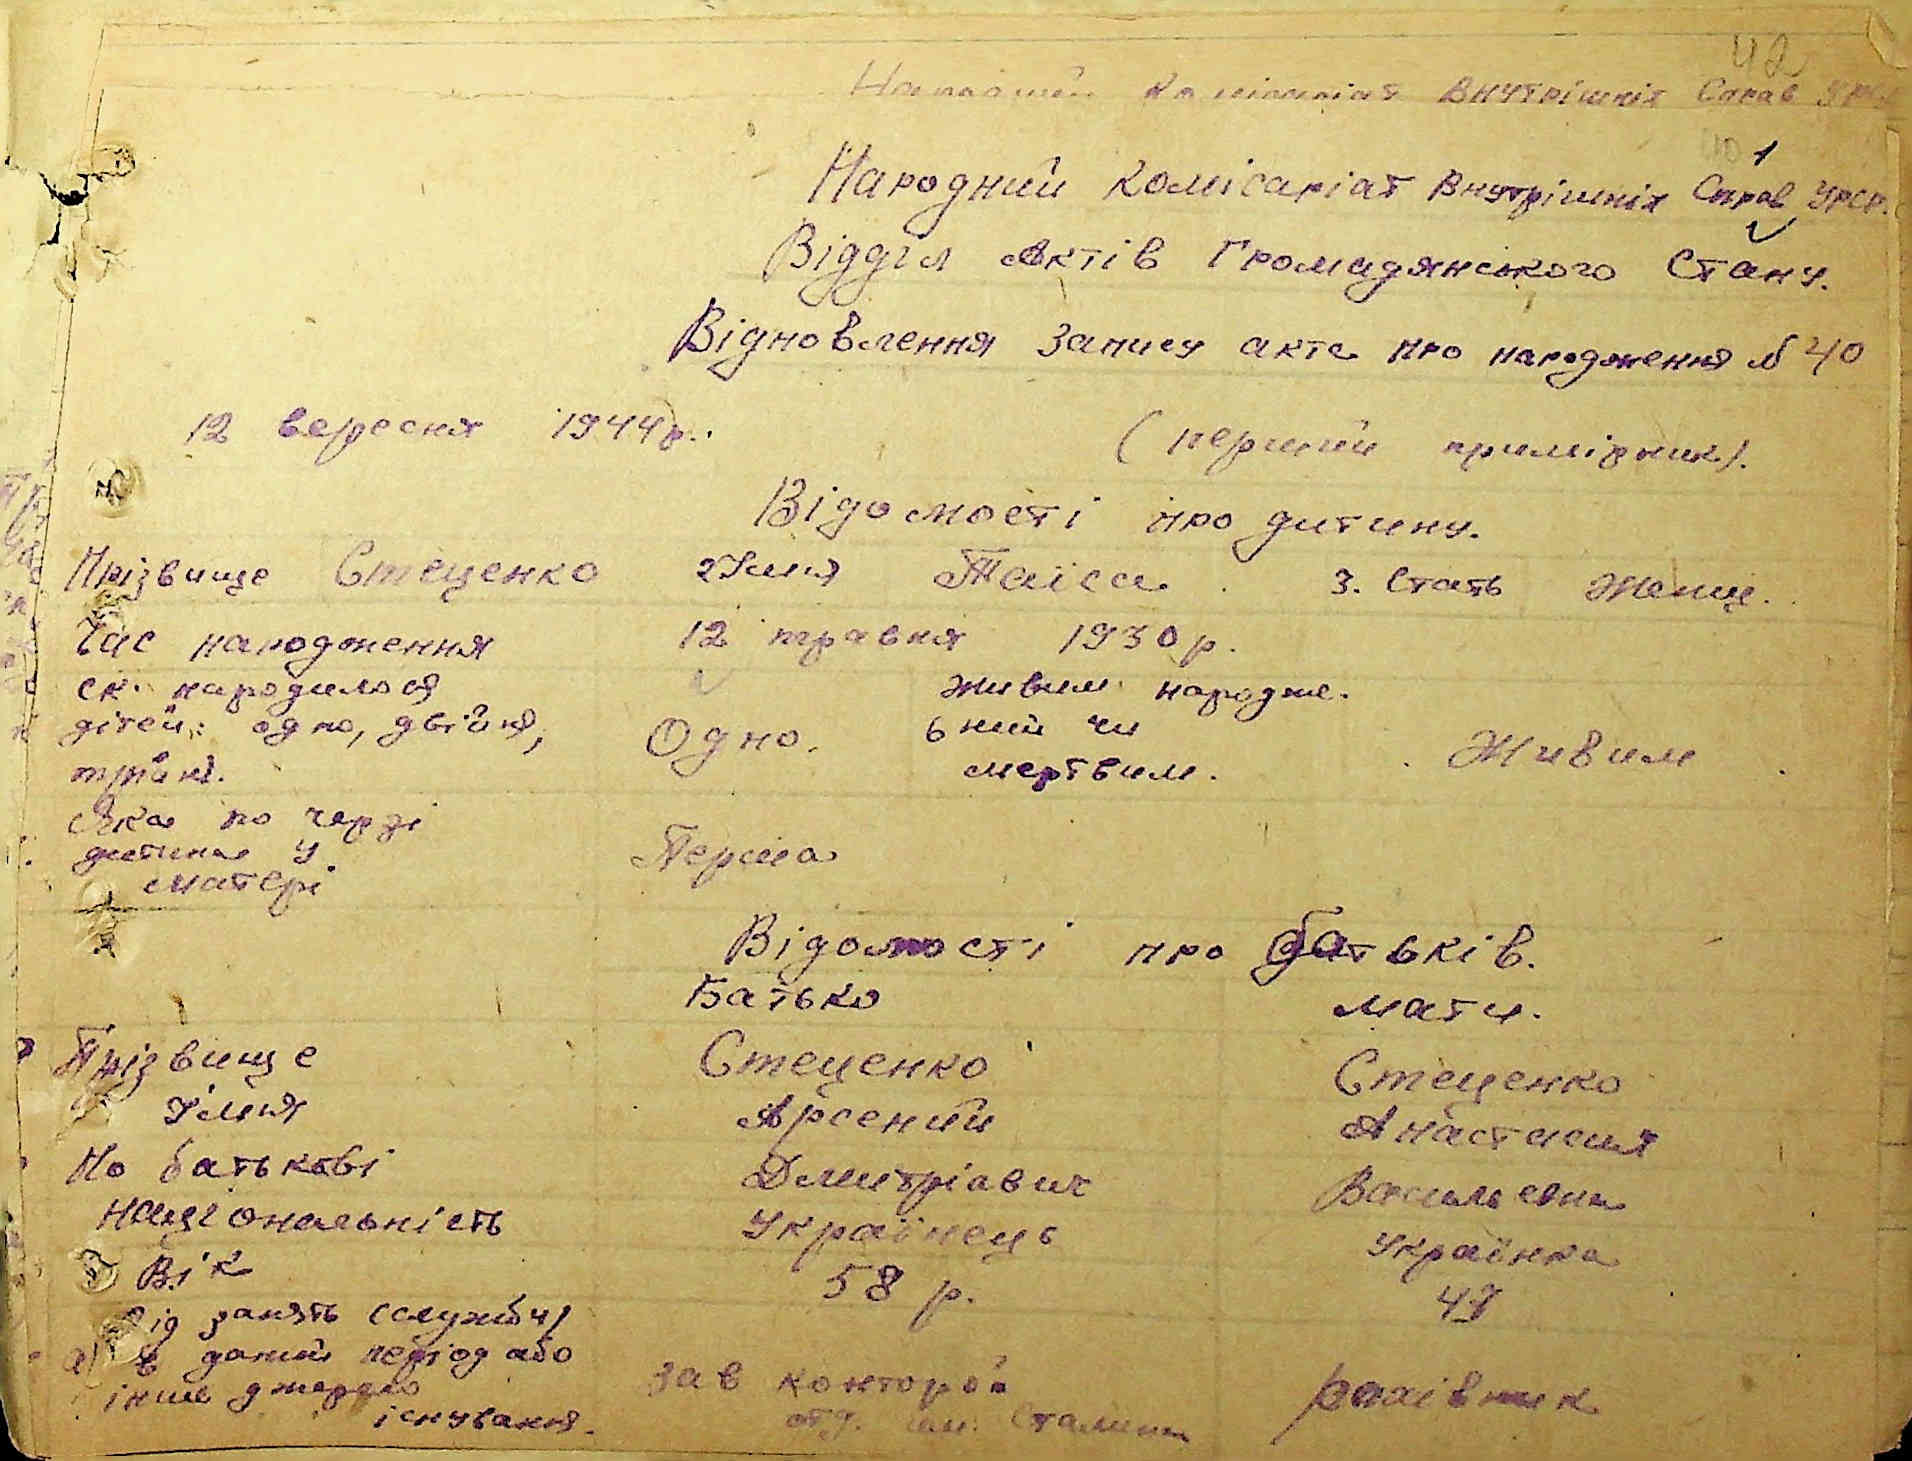 42
Народний Комісаріат Внутрішніх Справ УРСР
1
Народний Комісаріат Внутрішніх Справ УРСР.
Відділ Актів Громадянського Стану.
Відновлення запису акта про народження № 40
12 вересня 1944 р. (перший примірник).
Відомості про дитину.
Прізвище Стеценко 2 Ім'я Таїса 3. Стать Женщ.
Час народження 12 травня 1930 р.
ск. народилося
дітей: одно, двійня,
трійня.
Одно.
живим народже-
6 ний чи
мертвим.
Живим
Яка по черзі
дитина у
матері
Перша
Відомості про батьків.
Батько мати.
Прізвище Стеценко Стеценко
Ім'я Арсений Анастасия
По батькові Дмитріавич Васильевна
Національність Українець Українка
Вік 58 р. 47
Від занять (служби)
а) в даний період або
інше джерело
існування.
зав конторой
отд. им. Сталина
рахівник